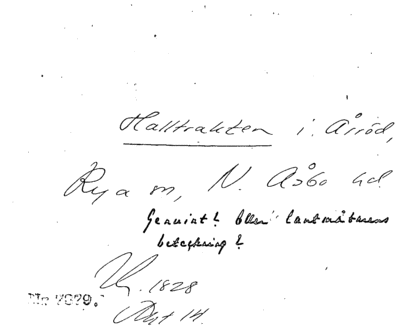 Halltrakten i Årröd,
Rya sn, N. Åsbo hd
Genuint? Eller lantmätarens
beteckning?
1828
Akt 14.